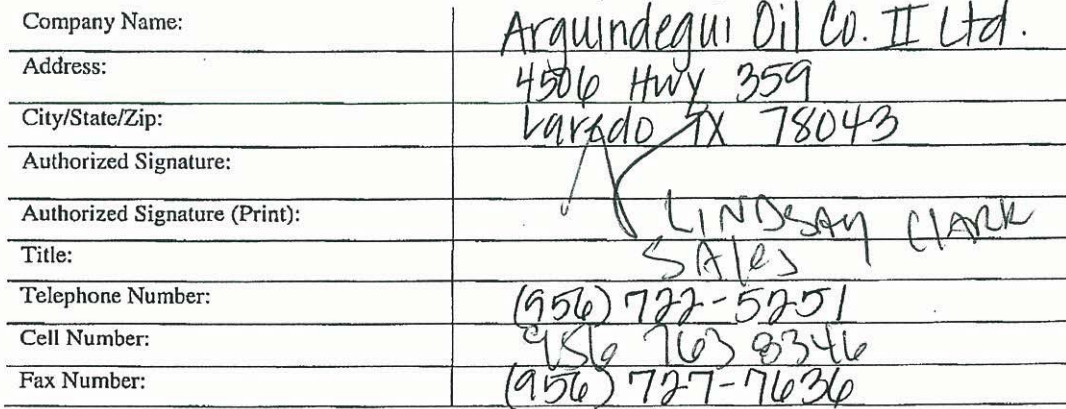 Company Name: Arguindegui Oil Co. II Ltd.
Address: 4506 Hwy 359
City/State/Zip: Laredo TX 78043
Authorized Signature:
Authorized Signature (Print): LINDSAY CLARK
Title: SAles
Telephone Number: (956) 722-5251
Cell Number: 956 763 8346
Fax Number: (956) 727-7636